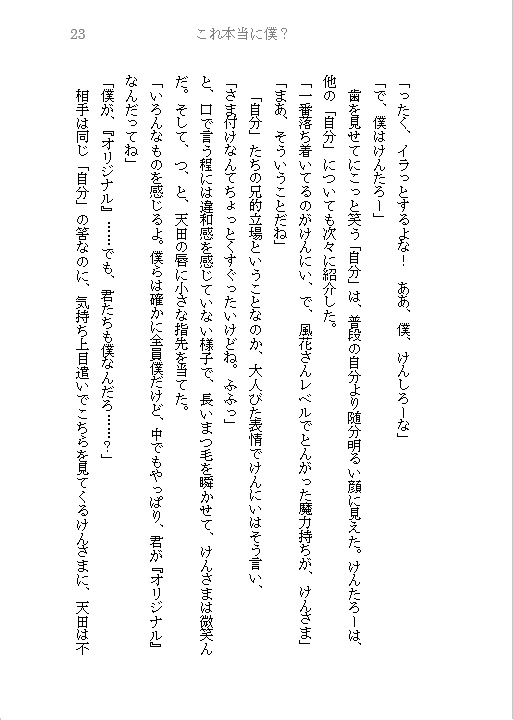 23
これ本当に僕？
「ったく、イラっとするよな！　ああ、僕、けんしろーな」
「で、僕はけんたろー」
　歯を見せてにこっと笑う「自分」は、普段の自分より随分明るい顔に見えた。けんたろーは、
他の「自分」についても次々に紹介した。
「一番落ち着いてるのがけんにい、で、風花さんレベルでとんがった魔力持ちが、けんさま」
「まあ、そういうことだね」
　「自分」たちの兄的立場ということなのか、大人びた表情でけんにいはそう言い、
「さま付けなんてちょっとくすぐったいけどね。ふふっ」
と、口で言う程には違和感を感じていない様子で、長いまつ毛を瞬かせて、けんさまは微笑ん
だ。そして、つ、と、天田の唇に小さな指先を当てた。
「いろんなものを感じるよ。僕らは確かに全員僕だけど、中でもやっぱり、君が『オリジナル』
なんだってね」
「僕が、『オリジナル』……でも、君たちも僕なんだろ……？」
　相手は同じ「自分」の筈なのに、気持ち上目遣いでこちらを見てくるけんさまに、天田は不